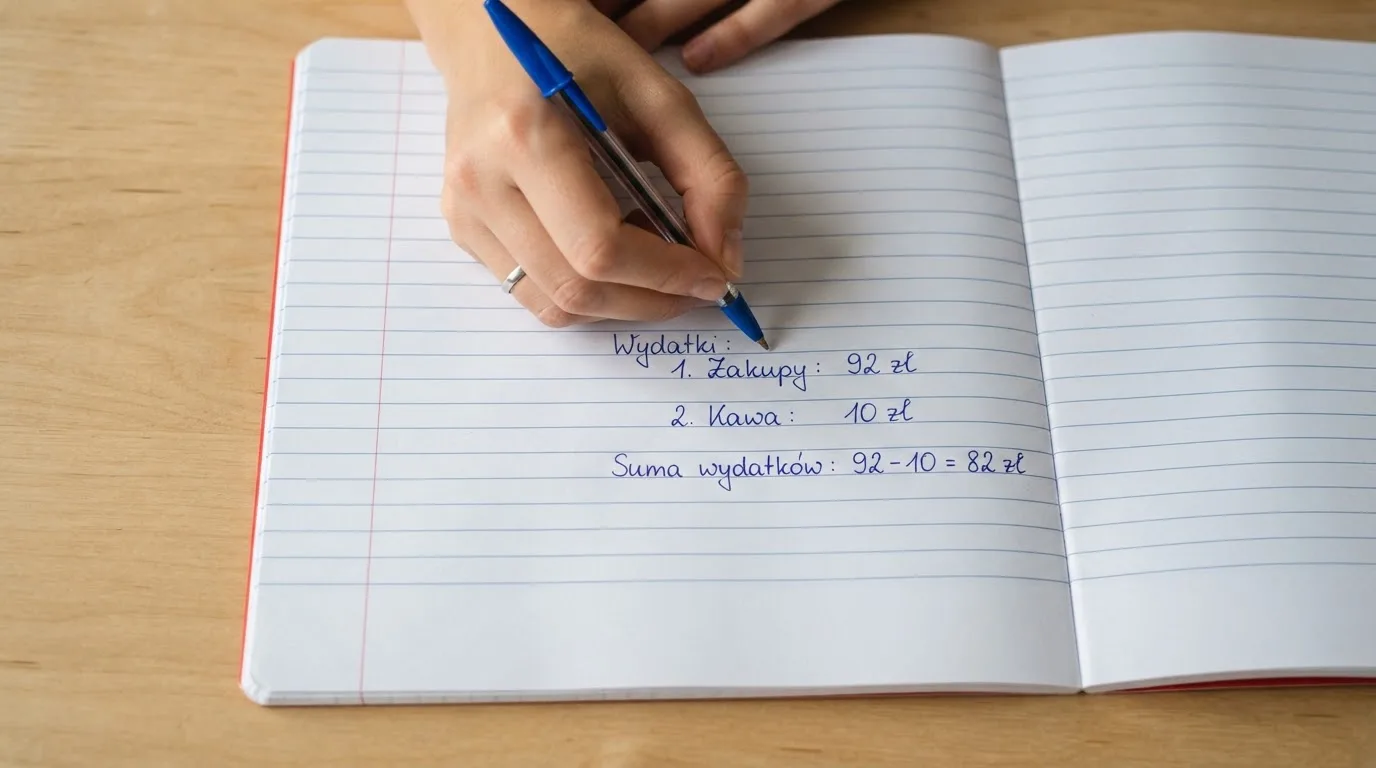 Wydatki:
1. Zakupy: 92 zł
2. Kawa: 10 zł
Suma wydatków: 92 - 10 = 82 zł